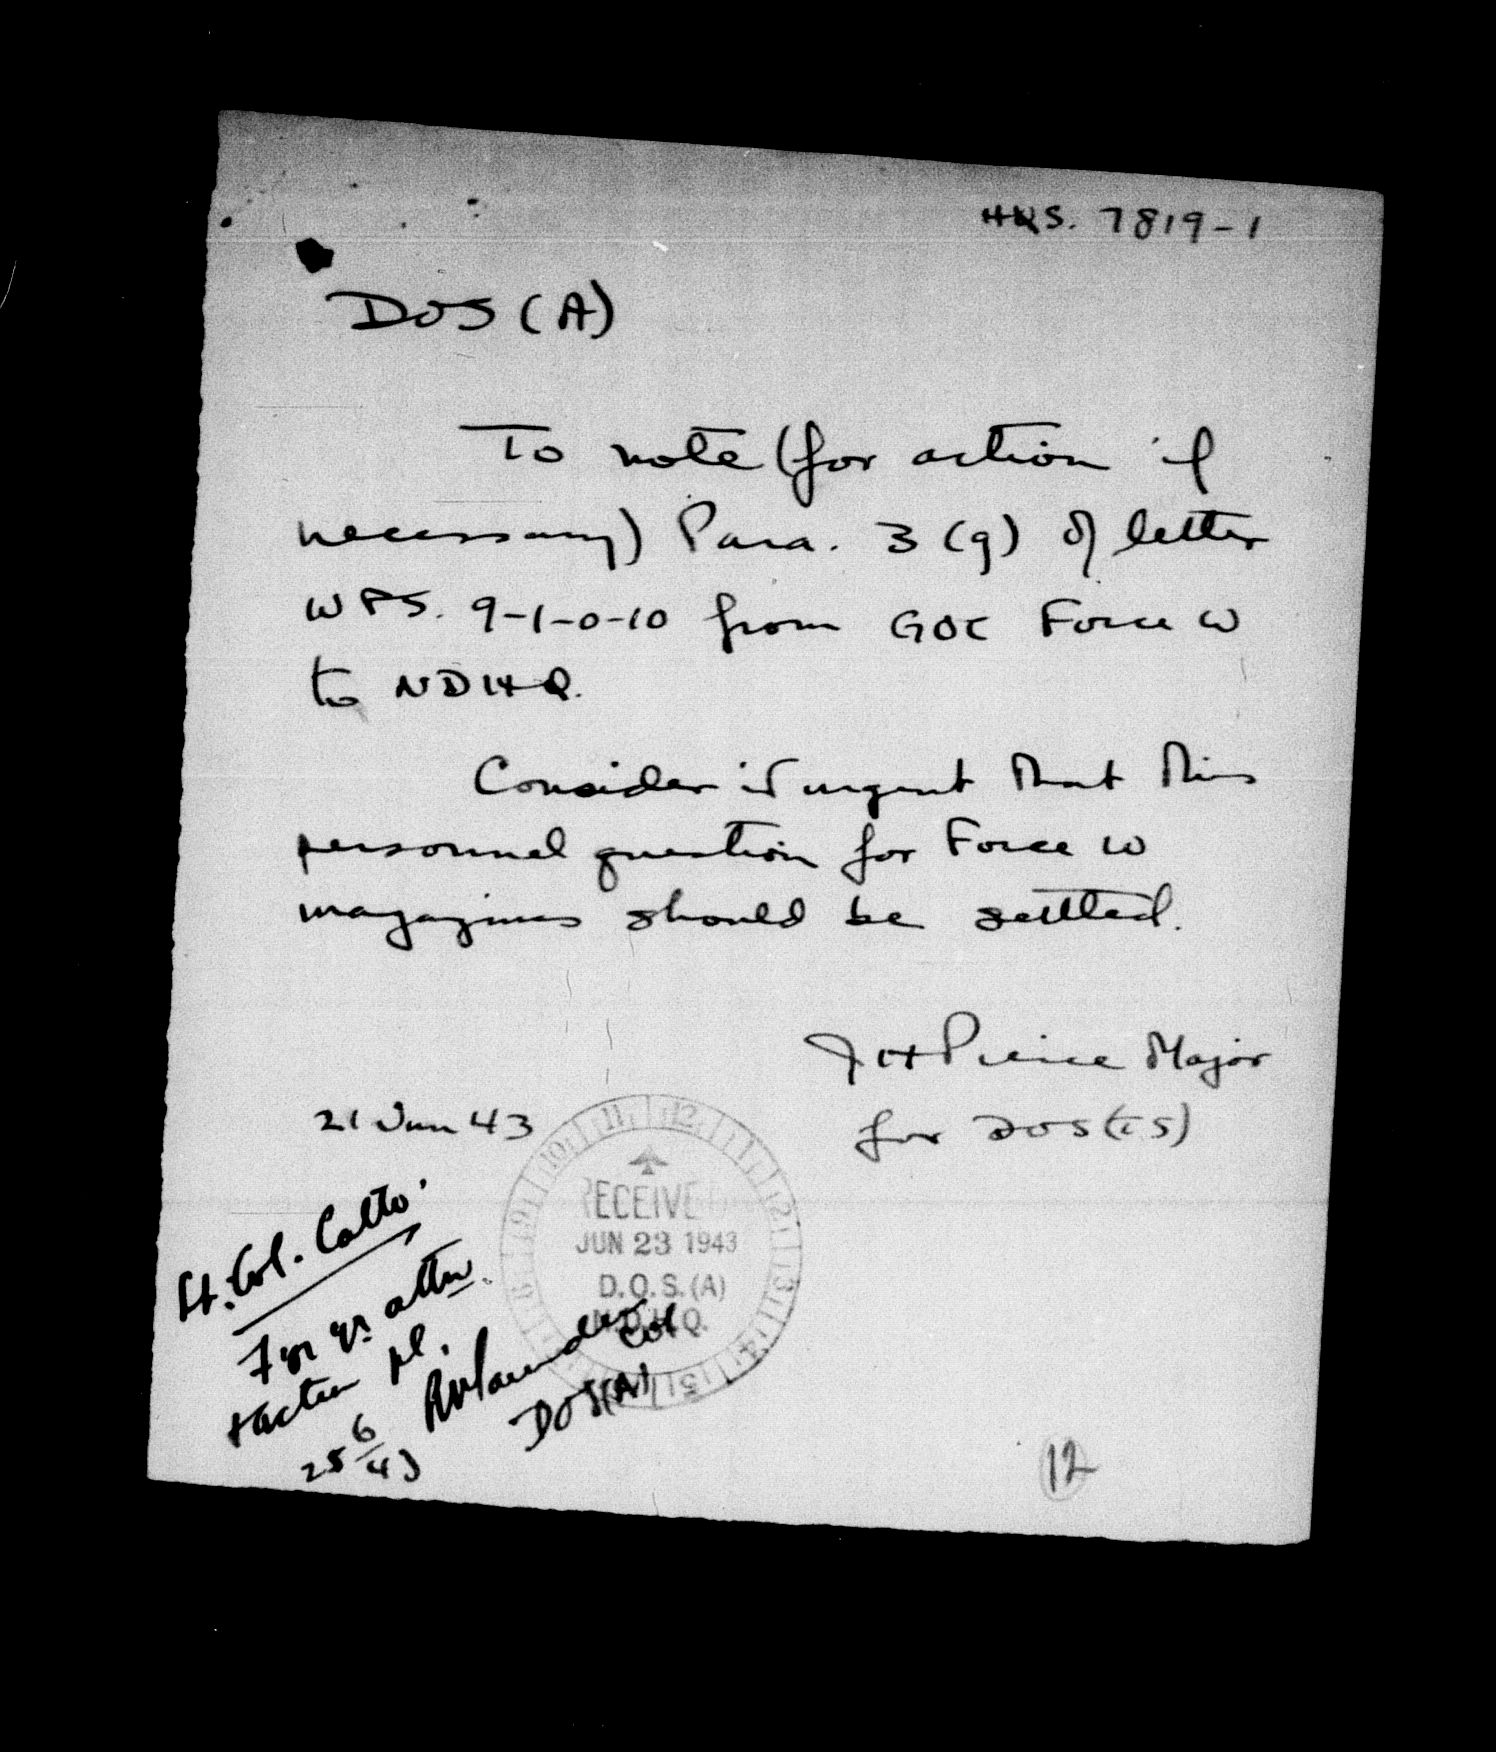 HQS. 7819-1
DOS (A)
To note (for action if
necessary) Para. 3 (g) of letter
WPS. 9-1-0-10 from GOC Force W
to NDHQ.
Consider it urgent that this
personnel question for Force W
magazines should be settled.
JH Peirce Major
for DOS(ES)
21 Jun 43
RECEIVED
JUN 23 1943
D.O.S. (A)
N.D.H.Q.
Lt. Col. Catto.
For yr attn.
+ action pl.
Col
DOS(A)
25 6/43
12